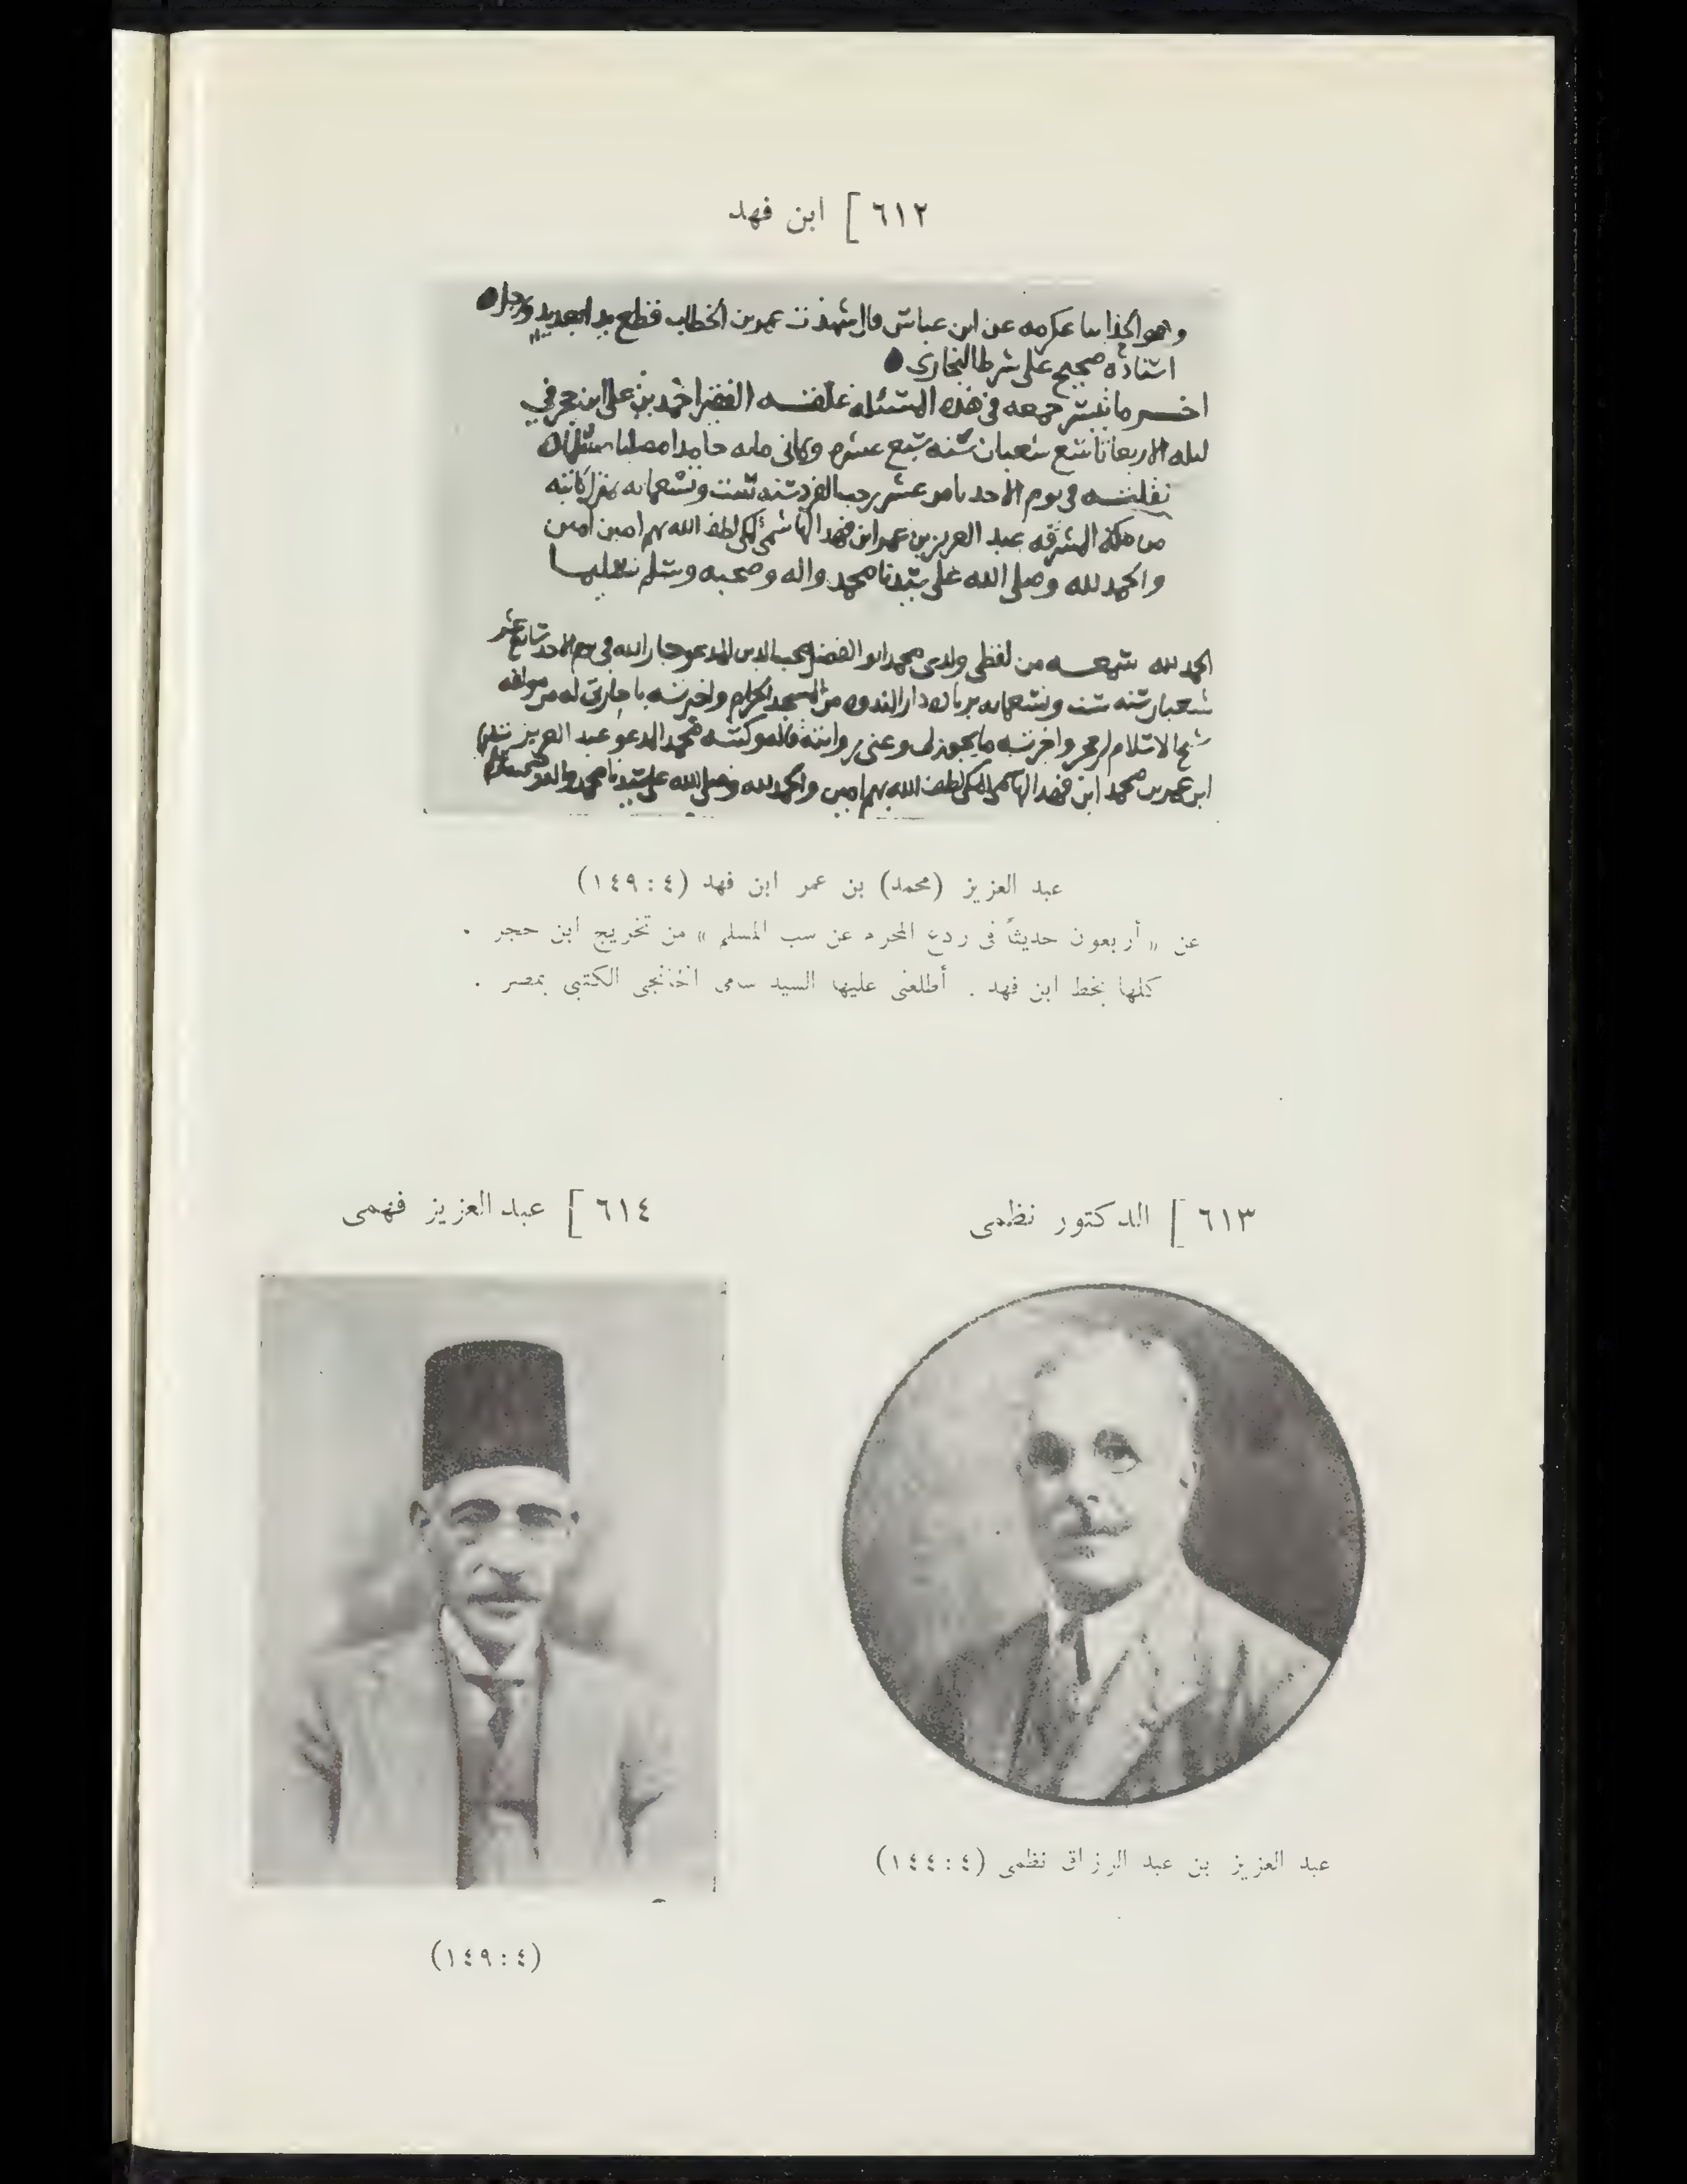 ٦١٢ ] ابن فهد
وهو الحذا سا عكرمه عن ابن عباس قال شهدت عمر بن الخطاب قطع يد بعد يد ورجل
اسناده صحيح على شرط البخارى
اخر ما تيسر جمعه فى هذه المسئله علقه الفقير احمد بن على ابن حجر في
ليله الاربعا تاسع شعبان سنه سبع عشره وثمانى مايه حامدا مصليا مسلما
نقلته فى يوم الاحد ثامن عشر رجب الفرد سنه ست وتسعمايه بمنزل كاتبه
من مكة المشرفه عبد العزيز بن عمر ابن فهد الهاشمى المكى لطف الله بهم امين امين
والحمد لله وصلى الله على سيدنا محمد واله وصحبه وسلم تسليما
الحمد لله سمعه من لفظى ولدى محمد ابو الفضل محب الدين المدعو جار الله فى يوم الاحد سابع عشر
شعبان سنه ست وتسعمايه بزيادة دار الندوه من المسجد الحرام واخبرته باجازتى له من مولفه
شيخ الاسلام ابن حجر واجزته ما يجوز لى وعنى روايته قاله وكتبه محمد المدعو عبد العزيز
ابن عمر بن محمد ابن فهد الهاشمى المكى لطف الله بهم امين والحمد لله وصلى الله على سيدنا محمد واله وصحبه وسلم
عبد العزيز (محمد) بن عمر ابن فهد (٤ : ١٤٩)
عن « أربعون حديثاً فى ردع المجرم عن سب المسلم » من تخريج ابن حجر .
كلها بخط ابن فهد . أطلعنى عليها السيد سامى الخانجى الكتبى بمصر .
٦١٣ ] الدكتور نظمى
عبد العزيز بن عبد الرزاق نظمى (٤ : ١٤٤)
٦١٤ ] عبد العزيز فهمى
(٤ : ١٤٩)